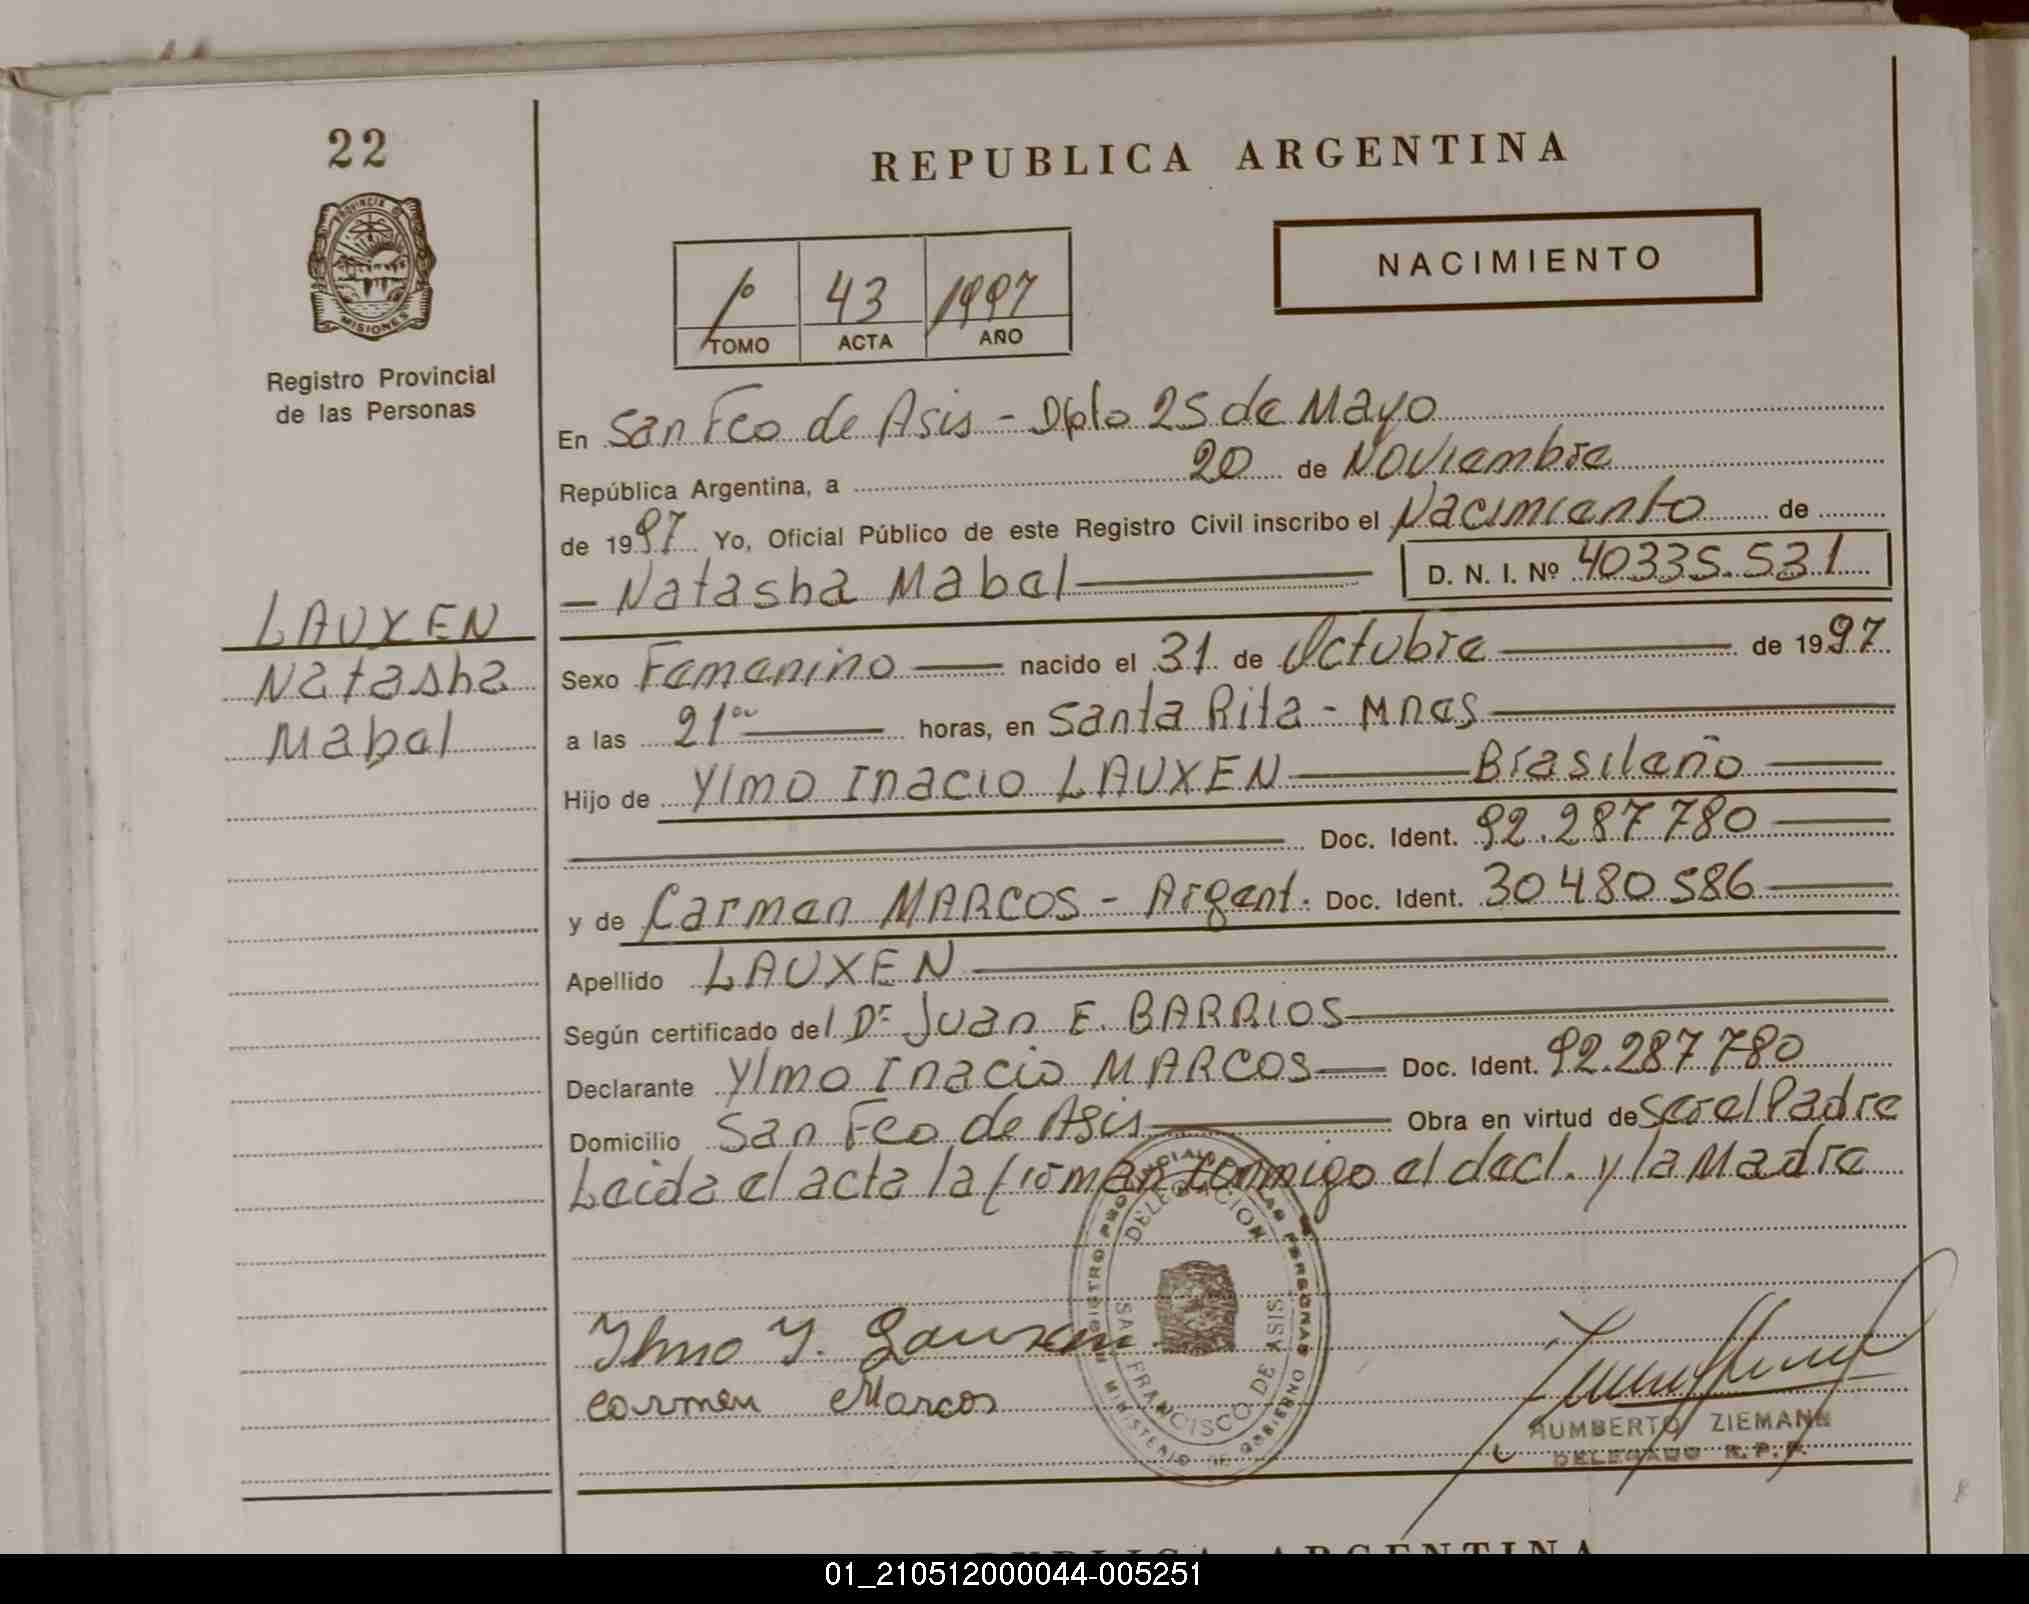 22
REPUBLICA ARGENTINA
PROVINCIA DE
MISIONES
Registro Provincial
de las Personas
NACIMIENTO
1º 43 1997
TOMO ACTA AÑO
En San Fco de Asis - Dpto 25 de Mayo
República Argentina, a 20 de Noviembre
de 1997 Yo, Oficial Público de este Registro Civil inscribo el Nacimiento de
- Natasha Mabel D. N. I. Nº 40335.531
LAUXEN
Natasha
Mabel
Sexo Femenino nacido el 31 de Octubre de 1997
a las 21ºº horas, en Santa Rita - Mnes
Hijo de Ylmo Inacio LAUXEN Brasileño
Doc. Ident. 92.287780
y de Carmen MARCOS - Argent. Doc. Ident. 30480586
Apellido LAUXEN
Según certificado del Dr Juan E. BARRIOS
Declarante Ylmo Inacio MARCOS Doc. Ident. 92.287.780
Domicilio San Fco de Asis Obra en virtud de ser el Padre
Leida el acta la firman conmigo el decl. y la Madre
REGISTRO PROVINCIAL DE LAS PERSONAS
MINISTERIO DE GOBIERNO
DELEGACION
SAN FRANCISCO DE ASIS
Ylmo Y. Lauxen
Carmen Marcos
HUMBERTO ZIEMANN
DELEGADO R. P. P.
REPUBLICA ARGENTINA
01_210512000044-005251